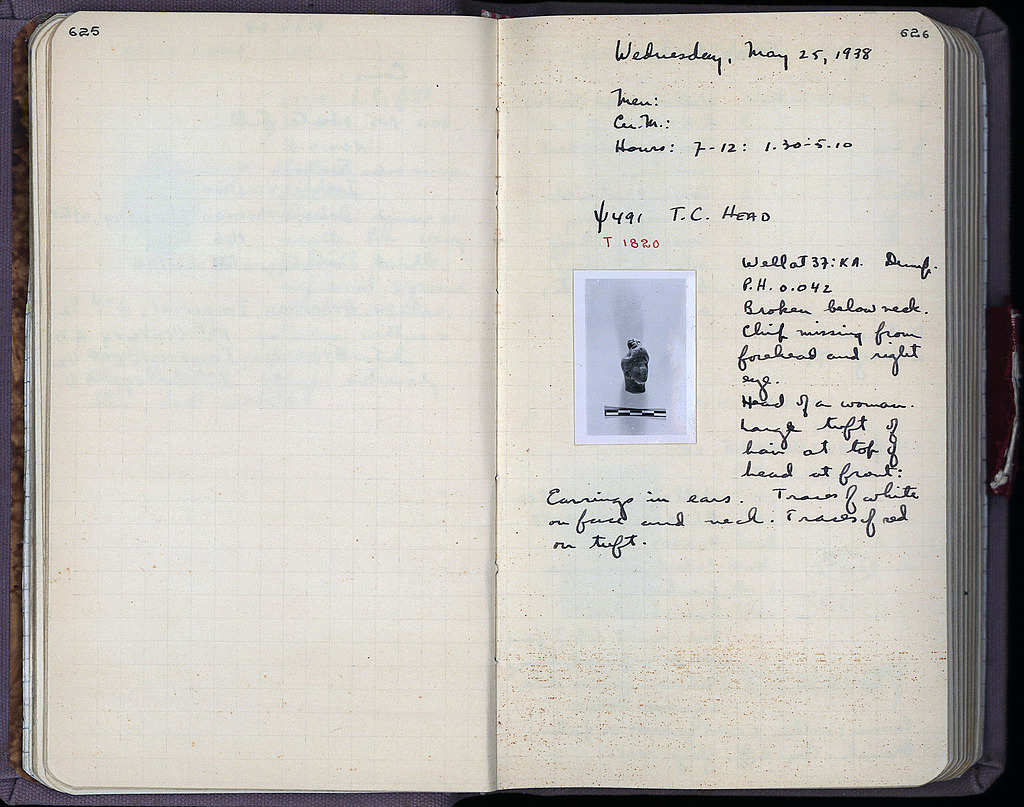 625
626
Wednesday, May 25, 1938
Men:
Cu.M.:
Hours: 7-12: 1.30-5.10
ψ491 T.C. HEAD
T 1820
Well at 37:KA. Dump.
P.H. 0.042
Broken below neck.
Chip missing from
forehead and right
eye.
Head of a woman.
Large tuft of
hair at top of
head at front:
Earrings in ears. Traces of white
on face and neck. Traces of red
on tuft.